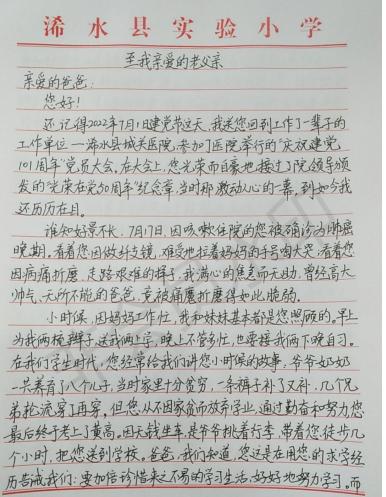 浠水县实验小学
至我亲爱的老父亲
亲爱的爸爸：
您好！
还记得2022年7月1日建党节这天，我送您回到工作了一辈子的
工作单位—浠水县城关医院，参加了医院举行的“庆祝建党
101周年”党员大会。在大会上，您光荣而自豪地接过了院领导颁
发的“光荣在党50周年”纪念章，当时那激动人心的一幕，到如今我
还历历在目。
谁知好景不长，7月17日，因咳嗽住院的您被确诊为肺癌
晚期。看着您因做纤支镜，难受地拉着妈妈的手号啕大哭，看着您
因病痛折磨，走路艰难的样子，我满心的焦急而无助，曾经高大
帅气、无所不能的爸爸，竟被病魔折磨得如此脆弱。
小时候，因妈妈工作忙，我和妹妹基本都是您照顾的。早上
为我俩梳辫子，送我俩上学，晚上不管多忙，也要接我俩下晚自习。
在我们学生时代，您经常给我们讲您小时候的故事，爷爷奶奶
一共养育了八个儿子，当时家里十分贫穷，一条裤子补了又补，几个兄
弟轮流穿了再穿。但您从不因家贫而放弃学业，通过勤奋和努力，您
最后终于考上了黄高。因无钱坐车，是爷爷挑着行李，带着您徒步几
个小时，把您送到学校。爸爸，我们知道，您这是在用您的求学经
历告诫我们：要加倍珍惜来之不易的学习生活，好好地努力学习。而